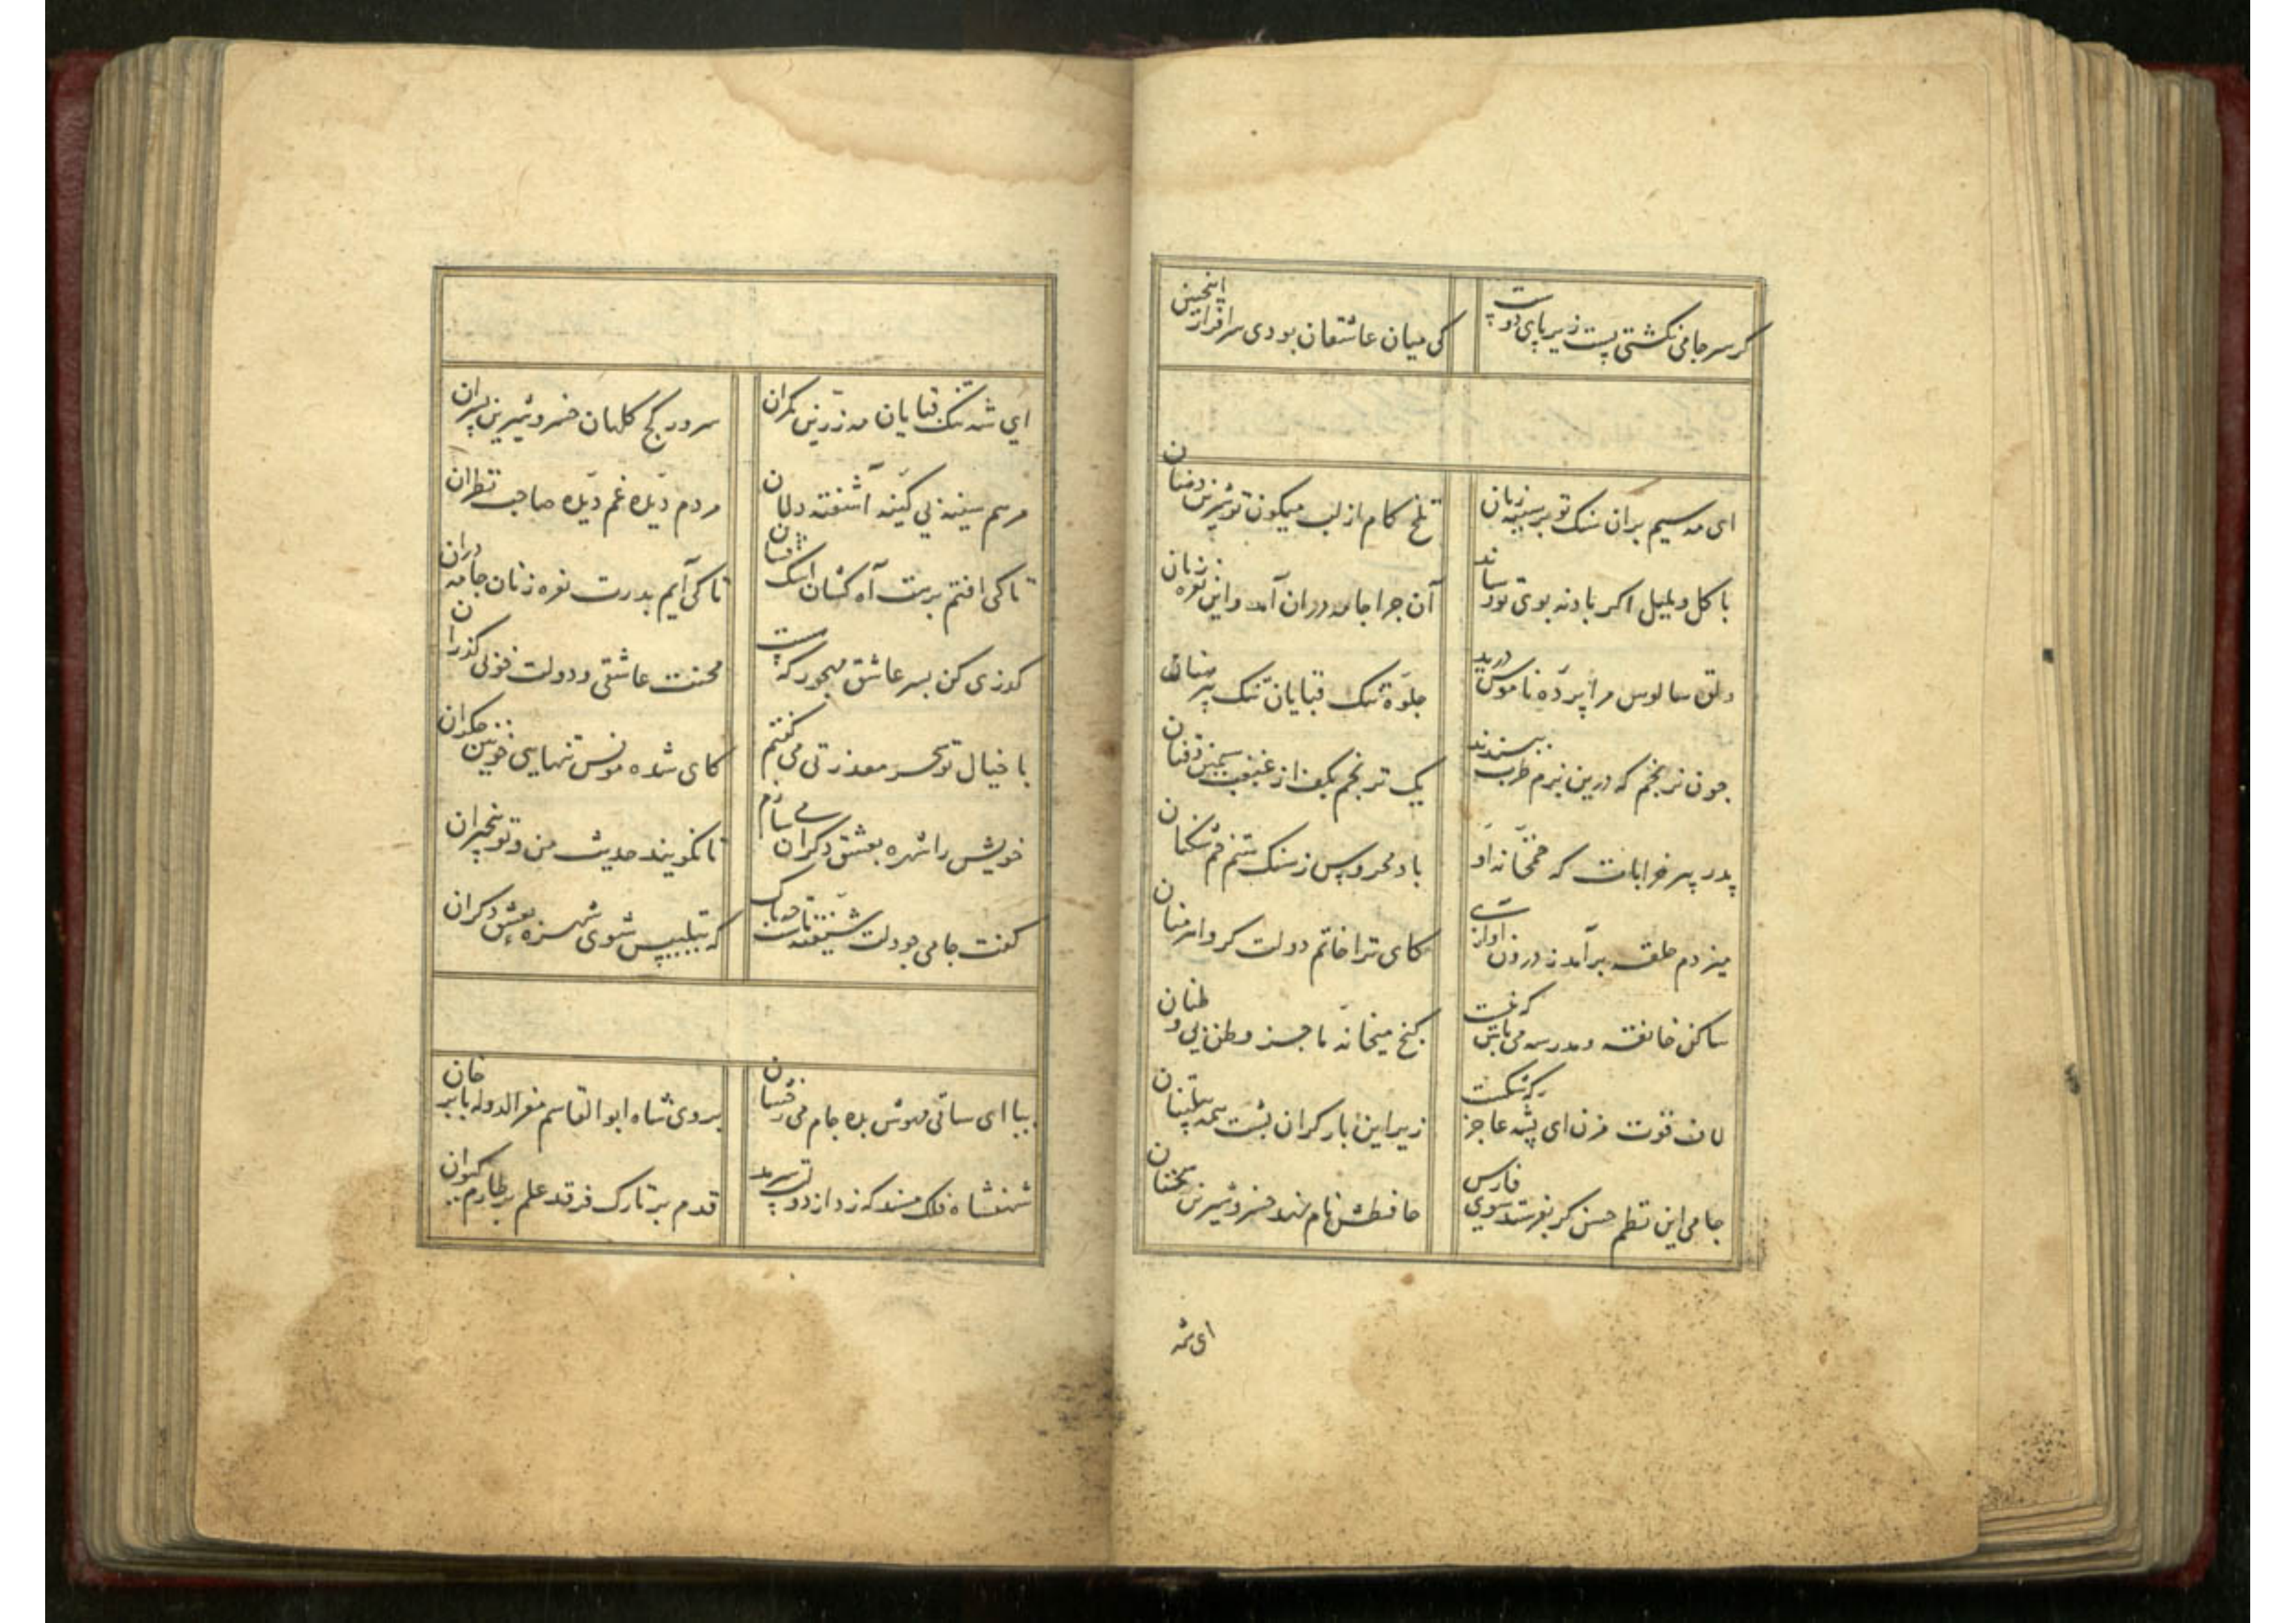 کر سر جامی نکشتی پست زیر پای دوست
کی میان عاشقان بودی سرافراز اینچنین
ای مه سیم بران سنک تو بر سینه زنان
تلخ کام از لب میکون تو شیرین دهنان
با کل و بلبل اکر باد نه بوی تو رساند
آن چرا جامه دران آمد و این نعره زنان
دلق سالوس مرا پرده ناموس درید
جلوه تنک قبایان تنک پیرهنان
چون ترنجم که درین بزم طرب نپسندند
یک ترنجم بکف از غبغب سیمین ذقنان
پدر پیر خرابات که خمخانه او
باد محروس ز سنک ستم خم شکنان
میزدم حلقه برآمد ز درون آوازی
کای ترا خاتم دولت کرو اهرمنان
ساکن خانقه و مدرسه می باش که نیست
کنج میخانه ما جز وطن بی وطنان
لاف قوت مزن ای پشه عاجز که شکست
زیر این بار کران پشت همه پیلتنان
جامی این نظم حسن کر بفرستد سوی فارس
حافظش نام نهد خسرو شیرین سخنان
ای شه
ای شه تنک قبایان مه زرین کمران
سرور کج کلهان خسرو شیرین پسران
مرهم سینه بی کینه آشفته دلان
مردم دیده غم دیده صاحب نظران
تا کی افتم برهت آه کشان اشک فشان
تا کی آیم بدرت نعره زنان جامه دران
کذری کن بسر عاشق مهجور که هست
محنت عاشقی و دولت خوبی کذران
با خیال تو سحر معذرتی می کفتم
کای شده مونس تنهایی خونین جکران
خویش را شهره بعشق دکران می سازم
تا نکویند حدیث من و تو بیخبران
کفت جامی چو دلت شیفته ماست چه باک
که بتلبیس شوی شهره بعشق دکران
بیا ای ساقی مهوش بده جام می رخشان
بروی شاه ابوالقاسم معزالدوله بابر خان
شهنشاه فلک مسند که زد از دولت سرمد
قدم بر تارک فرقد علم بر طارم کیوان